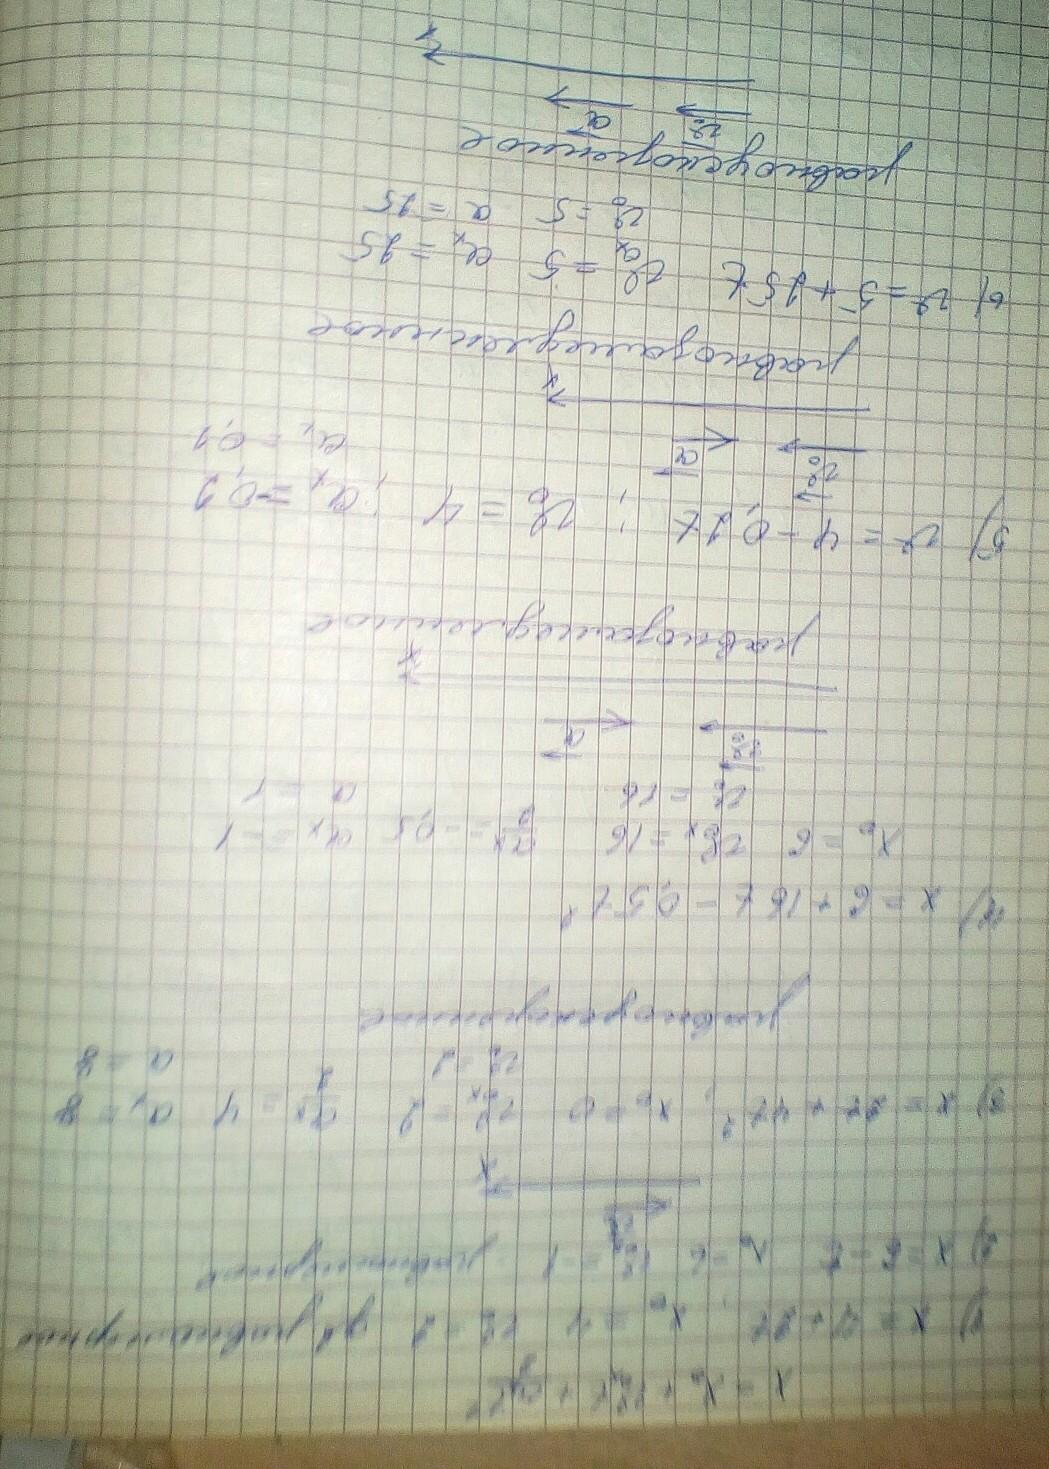 x = x₀ + v₀ₓt + aₓt²/2
1) x = 4 + 2t; x₀ = 4 v₀ = 2 равномерное
2) x = 6 - t x₀ = 6 v₀ₓ = -1 равномерное
x
3) x = 2t + 4t²; x₀ = 0 v₀ₓ = 2 aₓ/2 = 4 aₓ = 8
v₀ = 2 a = 8
равноускоренное
4) x = 6 + 16t - 0,5t²
x₀ = 6 v₀ₓ = 16 aₓ/2 = -0,5 aₓ = -1
v₀ = 16 a = 1
v₀ a
x
равнозамедленное
5) v = 4 - 0,1t; v₀ = 4; aₓ = -0,1
v₀ a a = 0,1
x
равнозамедленное
6) v = 5 + 25t v₀ₓ = 5 aₓ = 25
v₀ = 5 a = 25
равноускоренное
v₀ a
x